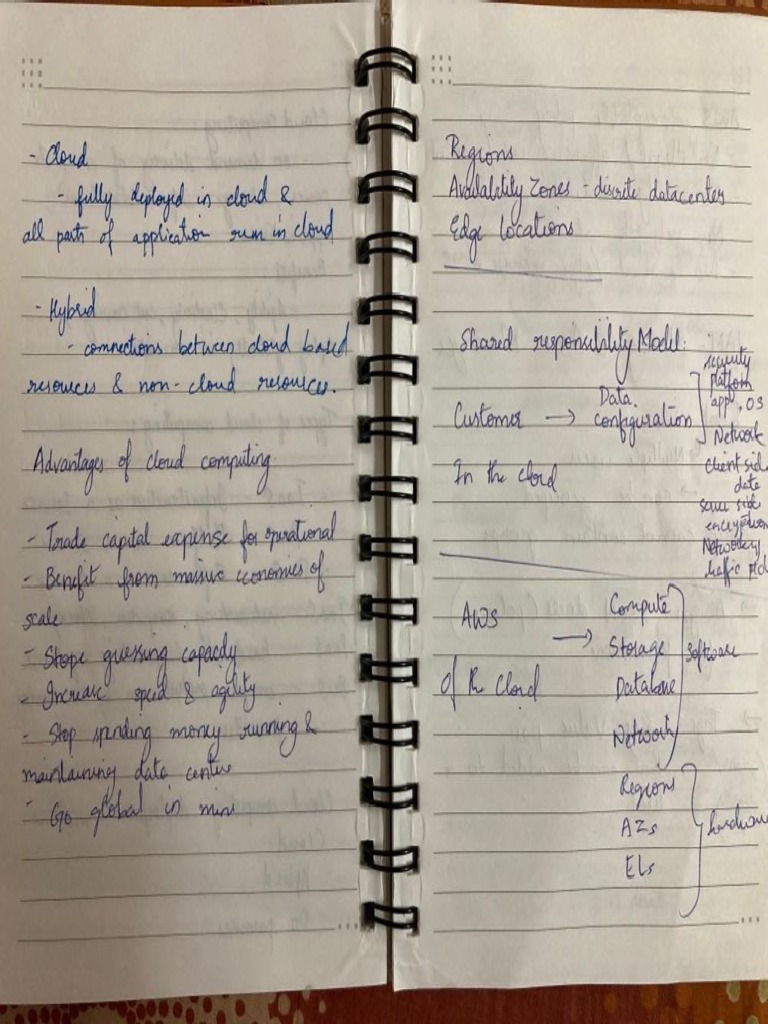 - Cloud
- fully deployed in cloud &
all parts of application run in cloud
- Hybrid
- connections between cloud based
resources & non-cloud resources.
Advantages of cloud computing
- Trade capital expense for operational
- Benefit from massive economies of
scale
- Stope guessing capacity
- Increase speed & agility
- Stop spending money running &
maintaining data centres
- Go global in mins
Regions
Availability Zones - discrete datacenters
Edge locations
Shared responsibility Model:
Customer → Data
configuration
security
platform
app, OS
Network
In the cloud
client side
data
server side
encryption
Network
traffic
AWS → Compute
Storage
Database
Network
Software
Of the Cloud
Regions
AZs
ELs
hardware